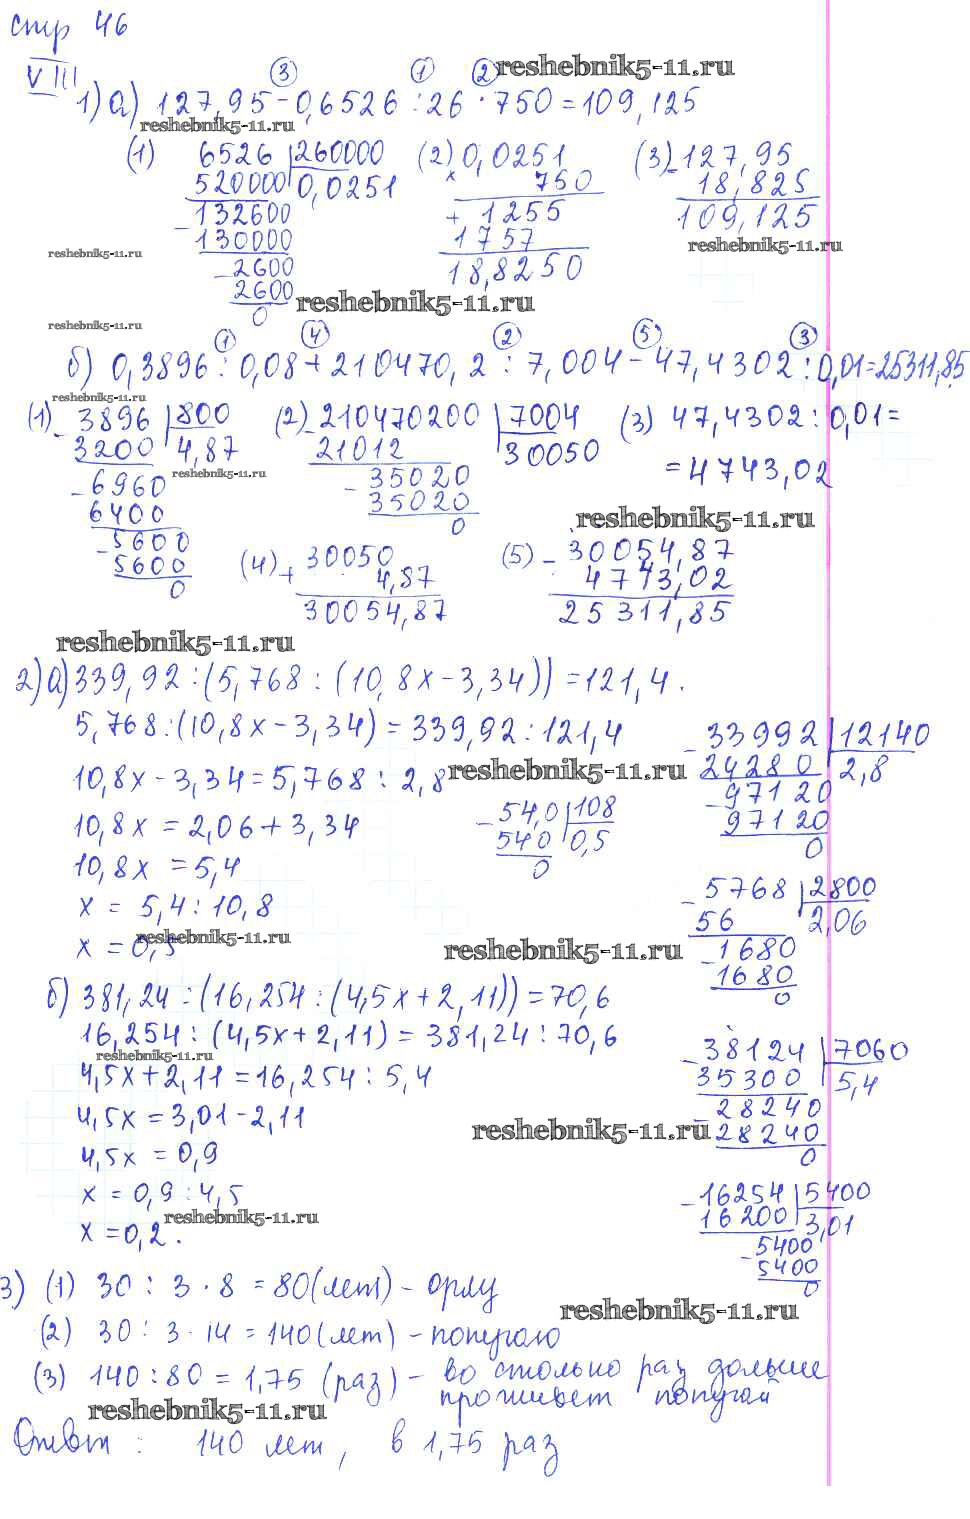 стр 46
VIII
③ ① ② reshebnik5-11.ru
1) а) 127,95 - 0,6526 : 26 · 750 = 109,125
reshebnik5-11.ru
(1) 6526 | 260000 (2) 0,0251 (3) - 127,95
520000 | 0,0251 × 750 18,825
- 132600 + 1255 109,125
130000 1757 reshebnik5-11.ru
reshebnik5-11.ru
- 2600 18,8250
2600 reshebnik5-11.ru
0
reshebnik5-11.ru
① ④ ② ⑤ ③
б) 0,3896 : 0,08 + 210470,2 : 7,004 - 47,4302 : 0,01 = 25311,85
reshebnik5-11.ru
(1) - 3896 | 800 (2) - 210470200 | 7004 (3) 47,4302 : 0,01 =
3200 | 4,87 21012 | 30050 = 4743,02
reshebnik5-11.ru
- 6960 - 35020
6400 35020
- 5600 0 reshebnik5-11.ru
5600 (4) + 30050 (5) - 30054,87
0 4,87 4743,02
30054,87 25311,85
reshebnik5-11.ru
2) а) 339,92 : (5,768 : (10,8x - 3,34)) = 121,4.
5,768 : (10,8x - 3,34) = 339,92 : 121,4 - 33992 | 12140
10,8x - 3,34 = 5,768 : 2,8 reshebnik5-11.ru 24280 | 2,8
- 97120
10,8x = 2,06 + 3,34 - 54,0 | 108 97120
540 | 0,5 0
10,8x = 5,4 0
x = 5,4 : 10,8 - 5768 | 2800
56 | 2,06
x = 0,5 reshebnik5-11.ru reshebnik5-11.ru - 1680
1680
0
б) 381,24 : (16,254 : (4,5x + 2,11)) = 70,6
16,254 : (4,5x + 2,11) = 381,24 : 70,6 - 38124 | 7060
reshebnik5-11.ru
4,5x + 2,11 = 16,254 : 5,4 35300 | 5,4
4,5x = 3,01 - 2,11 - 28240
reshebnik5-11.ru 28240
4,5x = 0,9 0
x = 0,9 : 4,5 - 16254 | 5400
reshebnik5-11.ru 16200 | 3,01
x = 0,2. - 5400
5400
0
3) (1) 30 : 3 · 8 = 80 (лет) - орлу
reshebnik5-11.ru
(2) 30 : 3 · 14 = 140 (лет) - попугаю
(3) 140 : 80 = 1,75 (раз) - во столько раз дольше
проживет попугай
reshebnik5-11.ru
Ответ : 140 лет, в 1,75 раз